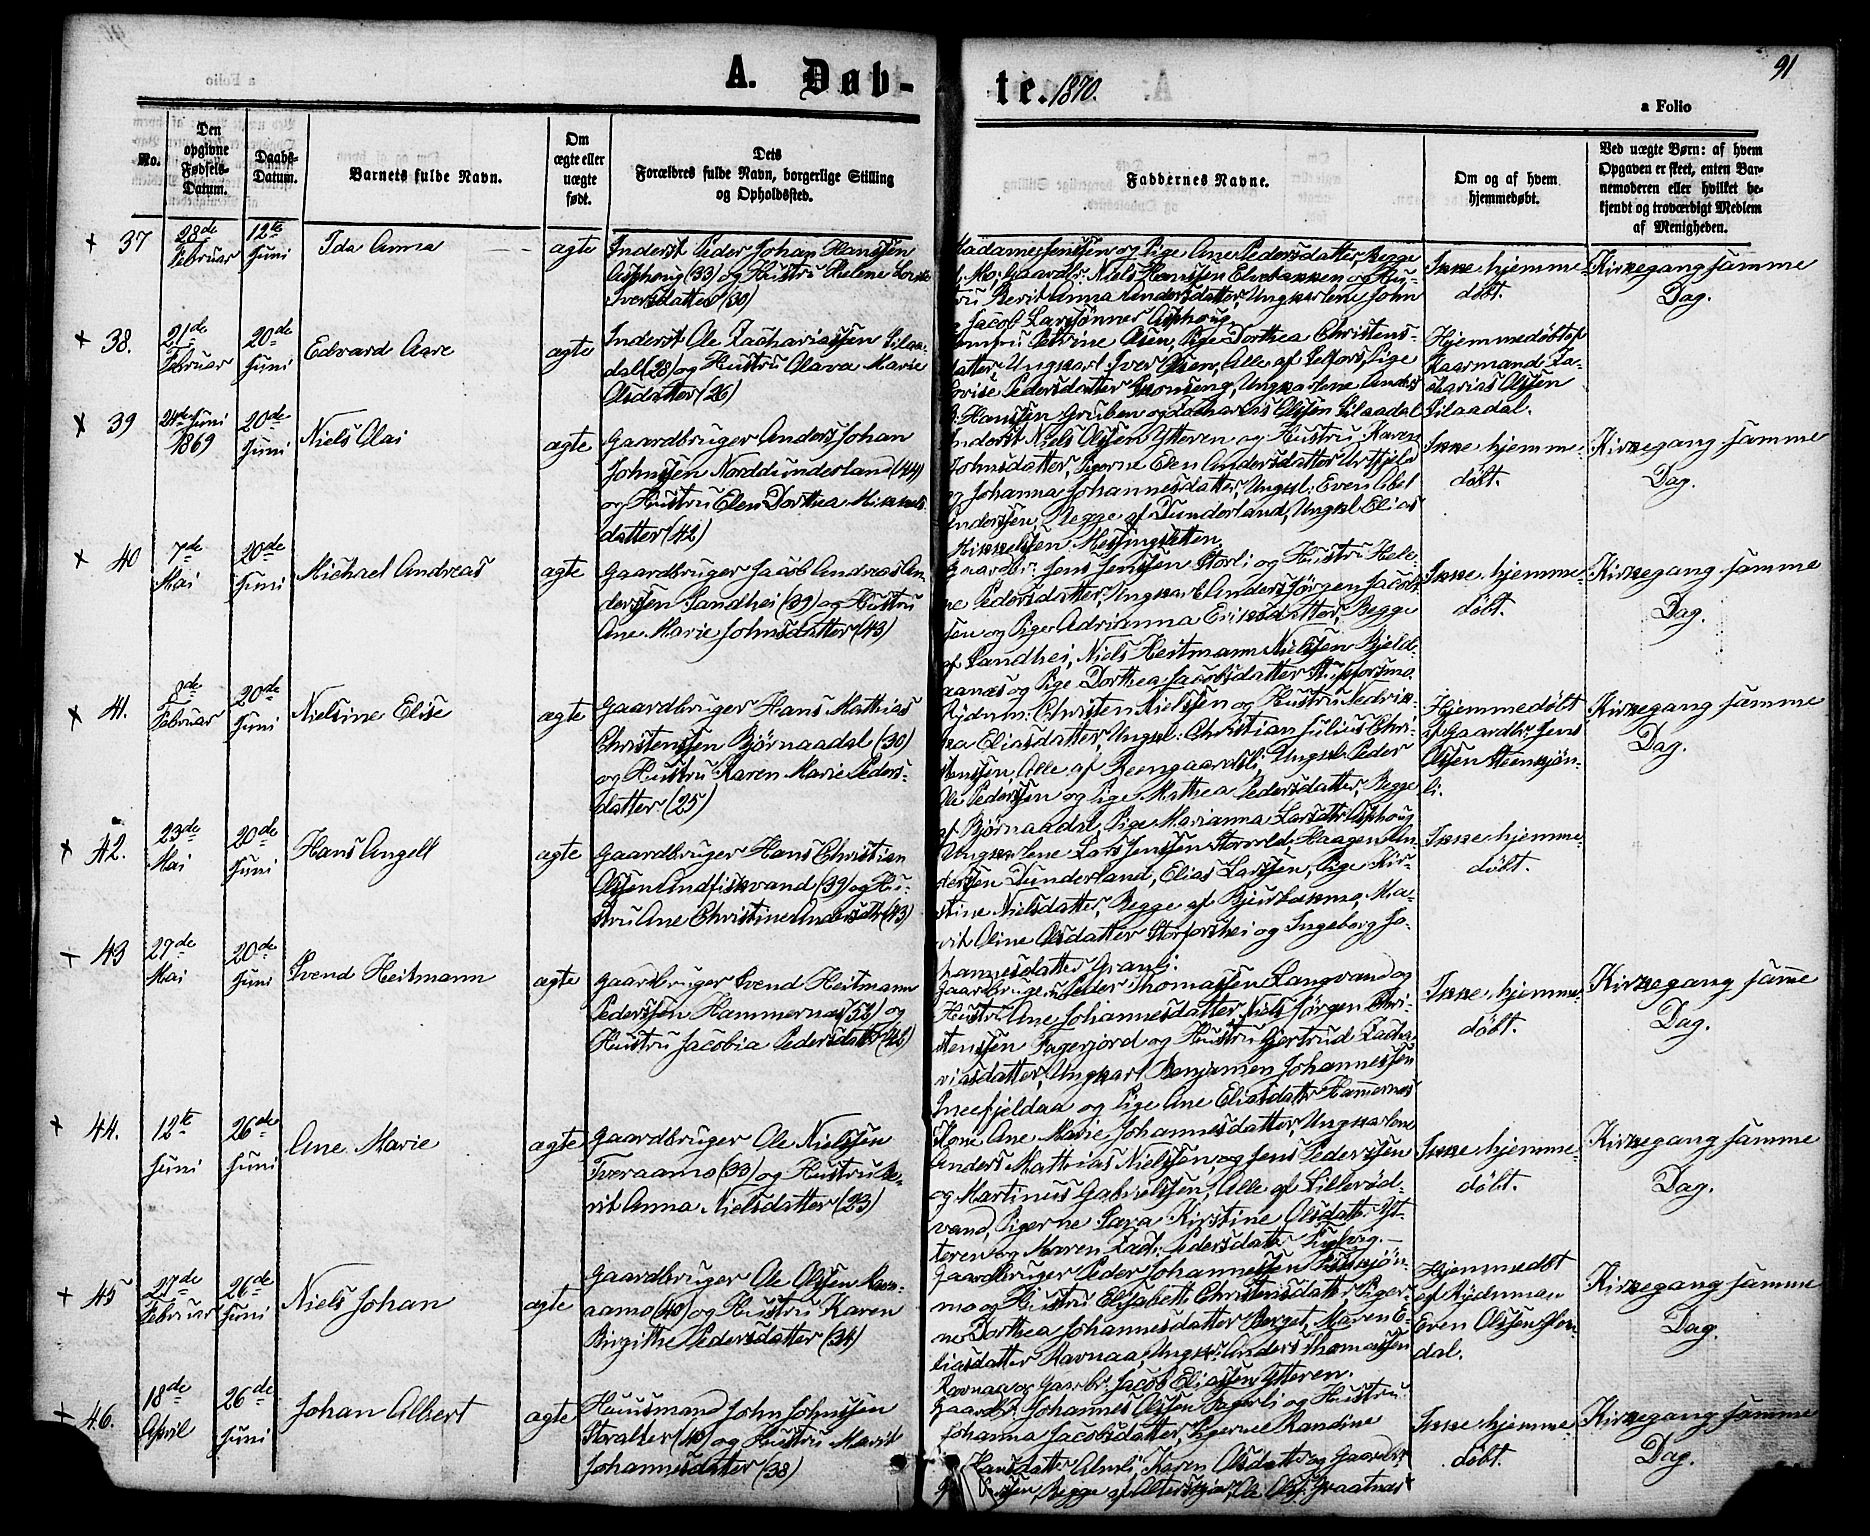 91
A. Døb-
te. 1870.
a Folio
No.
Den opgivne Fødsels-Datum.
Daabs-Datum.
Barnets fulde Navn.
Om ægte eller uægte født.
Dets Forældres fulde Navn, borgerlige Stilling og Opholdssted.
Faddernes Navne.
Om og af hvem hjemmedøbt.
Ved uægte Børn: af hvem Opgaven er skeet, enten Barnemoderen eller hvilket bekjendt og troværdigt Medlem af Menigheden.
+ 37
28de Februar
12te Juni
Ida Anna
ægte
Inderst Peder Johan Hanssen
Asphoug (33) og Hustru Helene
Iversdatter (30)
Madame Jenssen og Pige Ane Pedersdatter, Begge
Mo; Gaardbr. Niels Hanssen Elvebakken og Hu-
stru Berit Anna Andersdatter, Ungkarlene John
Jacob Larssønner Asphoug.
Ikke hjemme-
døbt.
Kirkegang samme
Dag.
+ 38.
21de Februar
20de Juni
Edvard Aare
ægte
Inderst Ole Zachariassen Lilaa-
dal (28) og Hustru Olava Marie
Olsdatter (26)
Petrine Olsen, Pige Dorthea Christens-
datter, Ungkarl Iver Olsen, Alle af Selfors, Pige
Lovise Pedersdatter Skonseng, Ungkarlene Anders
Hanssen Gruben og Zacharias Olssen Lilaadal
Hjemmedøbt af
Kaarmand Za-
charias Olssen
Lilaadal.
x 39
24de Juni 1869
20de Juni
Niels Olai
ægte
Gaardbruger Anders Johan
Johnssen Norddunderland (44)
og Hustru Elen Dorthea Mikkels-
datter (42)
Inderst Niels Olssen Ytteren og Hustru Karen
Johnsdatter, Pigerne Elen Andersdatter Urtfjeld
og Johanna Johannesdatter, Ungkl: Even Abel
Anderssen, Begge af Dunderland, Ungkl Elias
Mikkelssen Messingsletten
Ikke hjemme-
døbt.
Kirkegang samme
Dag.
+ 40
7de Mai
20de Juni
Michael Andreas
ægte
Gaardbruger Jacob Andreas An-
derssen Sandhei (39) og Hustru
Ane Marie Johnsdatter (43)
Gaardbr: Jens Jenssen Storli og Hustru Hele-
ne Pedersdatter, Ungkarl Anders Jørgen Jacob-
sen og Pige Adrianna Eriksdatter, Begge
af Sandhei, Niels Heitmann Nielssen Bjeld-
aanæs og Pige Dorthea Jacobsdatter Stupforsmo.
Ikke hjemme-
døbt.
Kirkegang samme
Dag.
x 41.
8de Februar
20de Juni
Nielsine Elise
ægte
Gaardbruger Hans Mathias
Christenssen Bjørnaadal (30)
og Hustru Karen Marie Peders-
datter (25)
Rydnm: Christen Nielssen og Hustru Fredrik-
ka Eliasdatter, Ungkl: Christian Julius Chri-
stenssen, Alle af Reengaardsli, Ungkl Peder
Ole Pederssen og Pige Mathea Pedersdatter, Begge
af Bjørnaadal, Pige Marianna Larsdtr Asphoug
Hjemmedøbt
af Gaardbr Jens
Olssen Steensjøn-
li.
Kirkegang samme
Dag.
+ 42.
23de Mai
20de Juni
Hans Angell
ægte
Gaardbruger Hans Christian
Olssen Andfiskvand (39) og Hu-
stru Ane Christine Andersdtr (43)
Ungkarlene Lars Jenssen Storvold, Haagen An-
derssen Dunderland, Elias Larssen, Pige Kir-
stine Nielsdatter, Begge af Bjurbækmo, Ma-
rit Oline Olsdatter Storforshei og Ingeborg Jo-
hannesdatter Granli.
Ikke hjemme-
døbt.
+ 43
27de Mai
20de Juni
Svend Heitmann
ægte
Gaardbruger Svend Heitmann
Pederssen Hammernæs (52) og
Hustru Jacobia Pedersdatter (42)
Gaardbrugerne Peder Thomassen Langvand og
Hustru Ane Johannesdatter, Niels Jørgen Chri-
stenssen Fagerjord og Hustru Gjertrud Zacha-
riasdatter, Ungkarl Benjamen Johannessen
Sneefjeldaa og Pige Ane Eliasdatter Hammernæs
Ikke hjemme-
døbt.
Kirkegang samme
Dag.
+ 44.
12te Juni
26de Juni
Ane Marie
ægte
Gaardbruger Ole Nielssen
Tveraamo (33) og Hustru Be-
rit Anna Nielsdatter (23)
Kone Ane Marie Johannesdatter, Ungkarlene
Anders Mathias Nielssen, og Jens Pederssen
og Martinus Gabrielssen, Alle af Lillerød-
vand, Pigerne Sara Kirstine Olsdatter Yt-
teren og Maren Zach: Pedersdatter
Ikke hjemme-
døbt.
Kirkegang samme
Dag.
+ 45
27de Februar
26de Juni
Niels Johan
ægte
Gaardbruger Ole Olssen Ravn-
aamo (40) og Hustru Karen
Birgithe Pedersdatter (34)
Gaardbruger Peder Johannessen
mo og Hustru Elisabeth Christensdatter, Piger-
ne Dorthea Johannesdatter Berget, Maren E-
liasdatter Ravnaa, Ungkr: Anders Thomassen
Ravnaa og Gaardbr. Jacob Eliassen Ytteren.
Hjemmedøbt
af Rydnman
Even Olssen
dal.
Kirkegang samme
Dag.
+ 46.
18de April
26de Juni
Johan Albert
ægte
Huusmand John Johnssen
Storalter (40) og Hustru Marit
Johannesdatter (38)
Gaardbr Johannes Olssen Fagerli og Hustru
Johanna Jacobsdatter, Pigerne Randine
Hansdatter Almli, Karen Olsdatter og Gaardbr
Begge af Alterskjær, Ole Olss. Graatnæs
Ikke hjemme-
døbt.
Kirkegang samme
Dag.